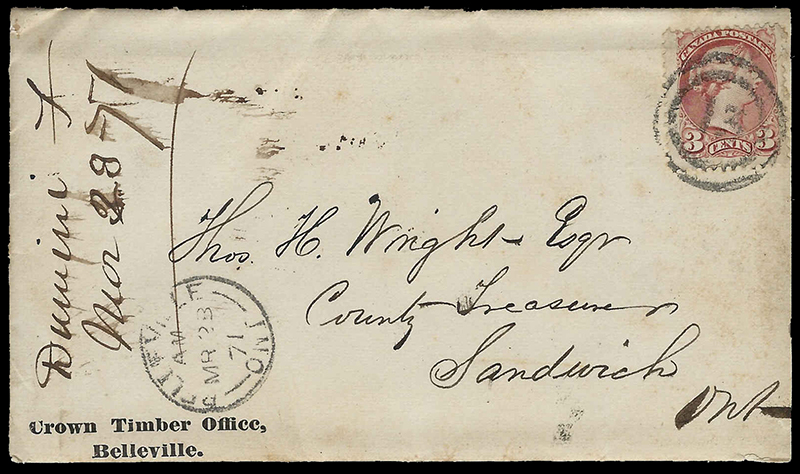 CANADA POSTAGE
3 CENTS 3
Mar 28 71
Thos. H. Wright Esqr
County Treasurer
Sandwich
Ont
BELLEVILLE ONT
AM
MR 28
71
Crown Timber Office,
Belleville.